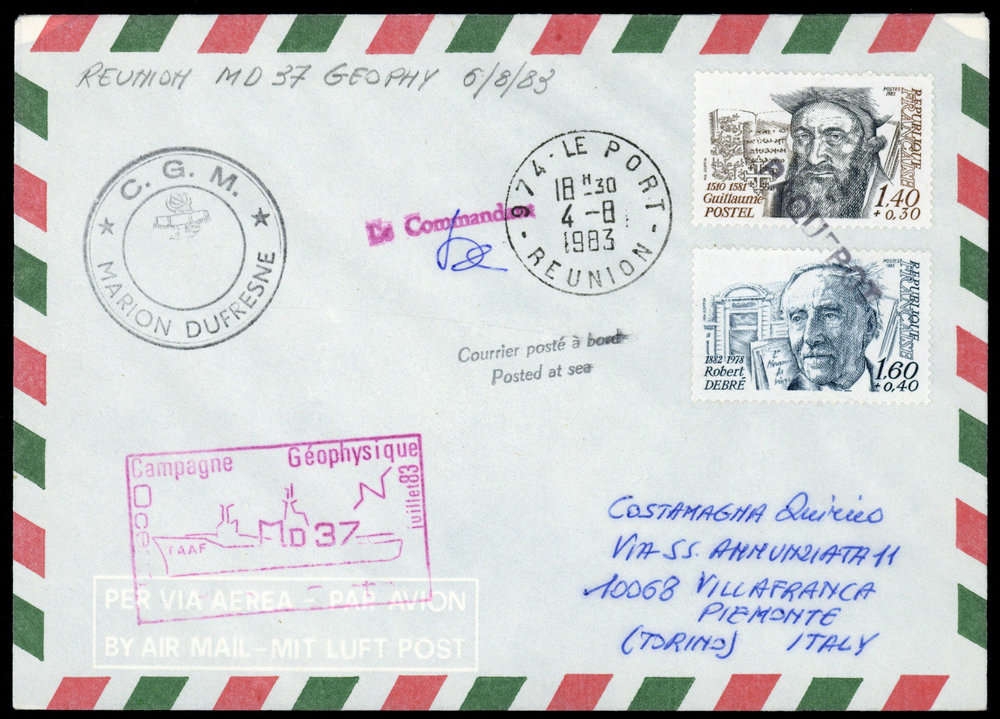 REUNION MD 37 GEOPHY 6/8/83
C. G. M.
MARION DUFRESNE
Le Commandant
974 - LE PORT
18 H 30
4 - 8
1983
- REUNION -
PAQUEBOT
POSTES 1982
REPUBLIQUE
FRANÇAISE
1510 1581
Guillaume
POSTEL
1.40
+ 0,30
REPUBLIQUE
FRANÇAISE
1882 1978
Robert
DEBRÉ
1,60
+ 0,40
Courrier posté à bord
Posted at sea
Campagne Géophysique
juillet 83
MD 37
TAAF
PER VIA AEREA - PAR AVION
BY AIR MAIL - MIT LUFT POST
COSTAMAGNA Quirino
VIA SS. ANNUNZIATA 11
10068 VILLAFRANCA
PIEMONTE
(TORINO) ITALY